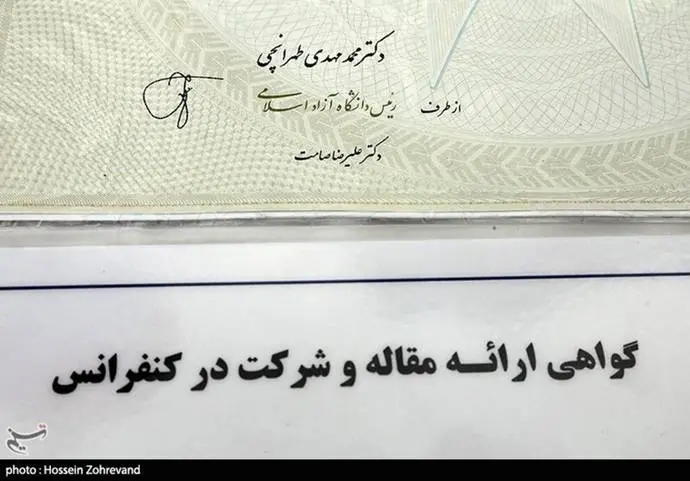 دکتر محمد مهدی طهرانچی
از طرف رئیس دانشگاه آزاد اسلامی
دکتر علیرضا صامت
گواهی ارائه مقاله و شرکت در کنفرانس
تسنیم
photo : Hossein Zohrevand